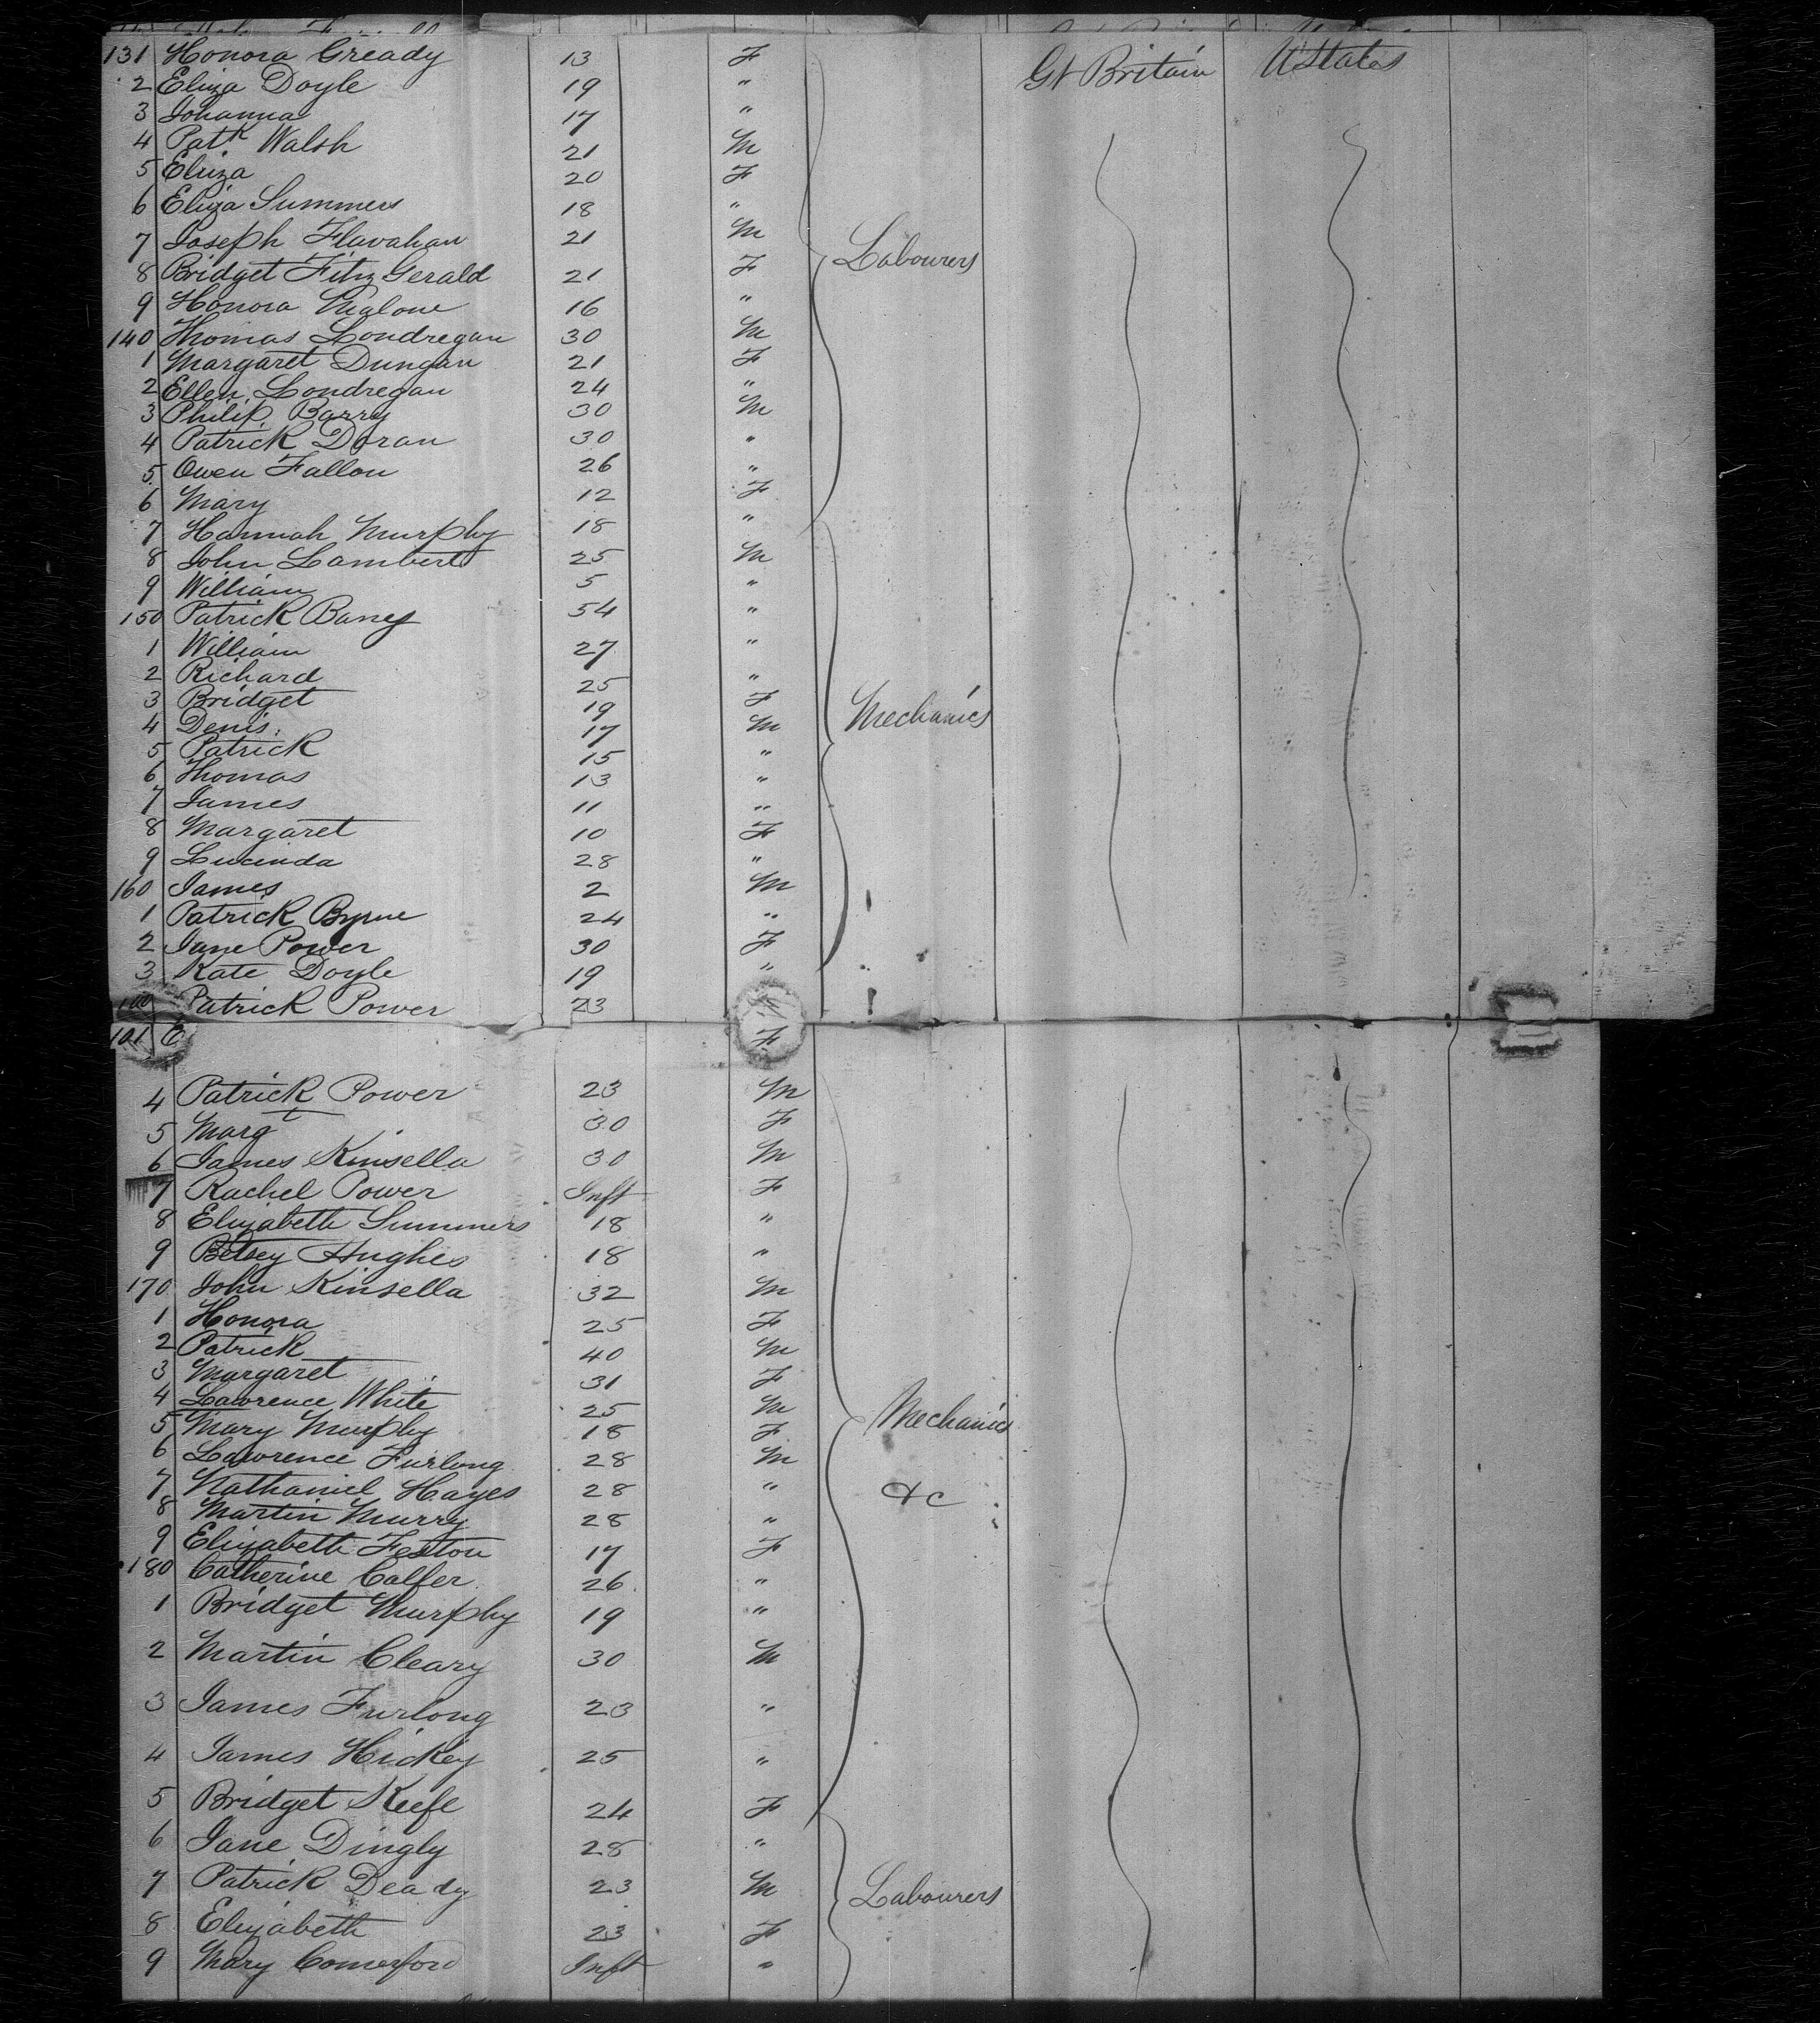 131 Honora Gready 13 F Gt Britain U States
2 Eliza Doyle 19 "
3 Johanna 17 "
4 Patk Walsh 21 M
5 Eliza 20 F
6 Eliza Summers 18 "
7 Joseph Flavahan 21 M
Labourers
8 Bridget FitzGerald 21 F
9 Honora Malone 16 "
140 Thomas Londregan 30 M
1 Margaret Dungan 21 F
2 Ellen Londregan 24 "
3 Philip Barry 30 M
4 Patrick Doran 30 "
5 Owen Fallon 26 "
6 Mary 12 F
7 Hannah Murphy 18 "
8 John Lambert 25 M
9 William 5 "
150 Patrick 54 "
1 William 27 "
2 Richard 25 "
3 Bridget 19 F
4 Denis 17 M Mechanics
5 Patrick 15 "
6 Thomas 13 "
7 James 11 "
8 Margaret 10 F
9 Lucinda 28 "
160 James 2 M
1 Patrick Byrne 24 "
2 Jane Power 30 F
3 Kate Doyle 19 "
Patrick Power 23
101 E F
4 Patrick Power 23 M
5 Margt 30 F
6 James Kinsella 30 M
7 Rachel Power Inft F
8 Elizabeth Summers 18 "
9 Betsey Hughes 18 "
170 John Kinsella 32 M
1 Honora 25 F
2 Patrick 40 M
3 Margaret 31 F
4 Lawrence White 25 M Mechanics
5 Mary Murphy 18 F
6 Lawrence Furlong 28 M
7 Nathaniel Hayes 28 " &c
8 Martin Murry 28 "
9 Elizabeth 17 F
180 Catherine Calfer 26 "
1 Bridget Murphy 19 "
2 Martin Cleary 30 M
3 James Furlong 23 "
4 James Hickey 25 "
5 Bridget Keefe 24 F
6 Jane Dingly 28 "
7 Patrick Deady 23 M Labourers
8 Elizabeth 23 F
9 Mary Comerford Inft "